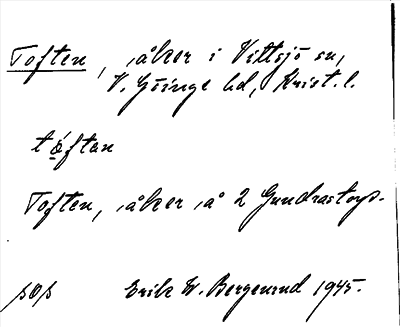 Toften, åker i Vittsjö sn,
V. Göinge hd, Krist. l.
tǫ́ftan
Toften, åker å 2 Gundrastorp.
Erik W. Bergenrud 1945.